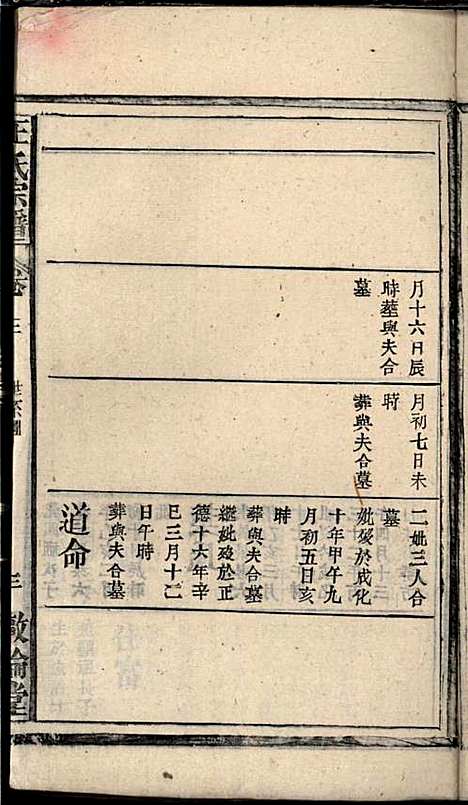 月十六日辰
時塟與夫合
墓
月初七日未
時
葬與夫合墓
二妣三人合
墓
妣歿於成化
十年甲午九
月初五日亥
時
葬與夫合墓
繼妣歿於正
德十六年辛
巳三月十二
日午時
葬與夫合墓
道命
汪氏宗譜
卷
世系圖
敦倫堂